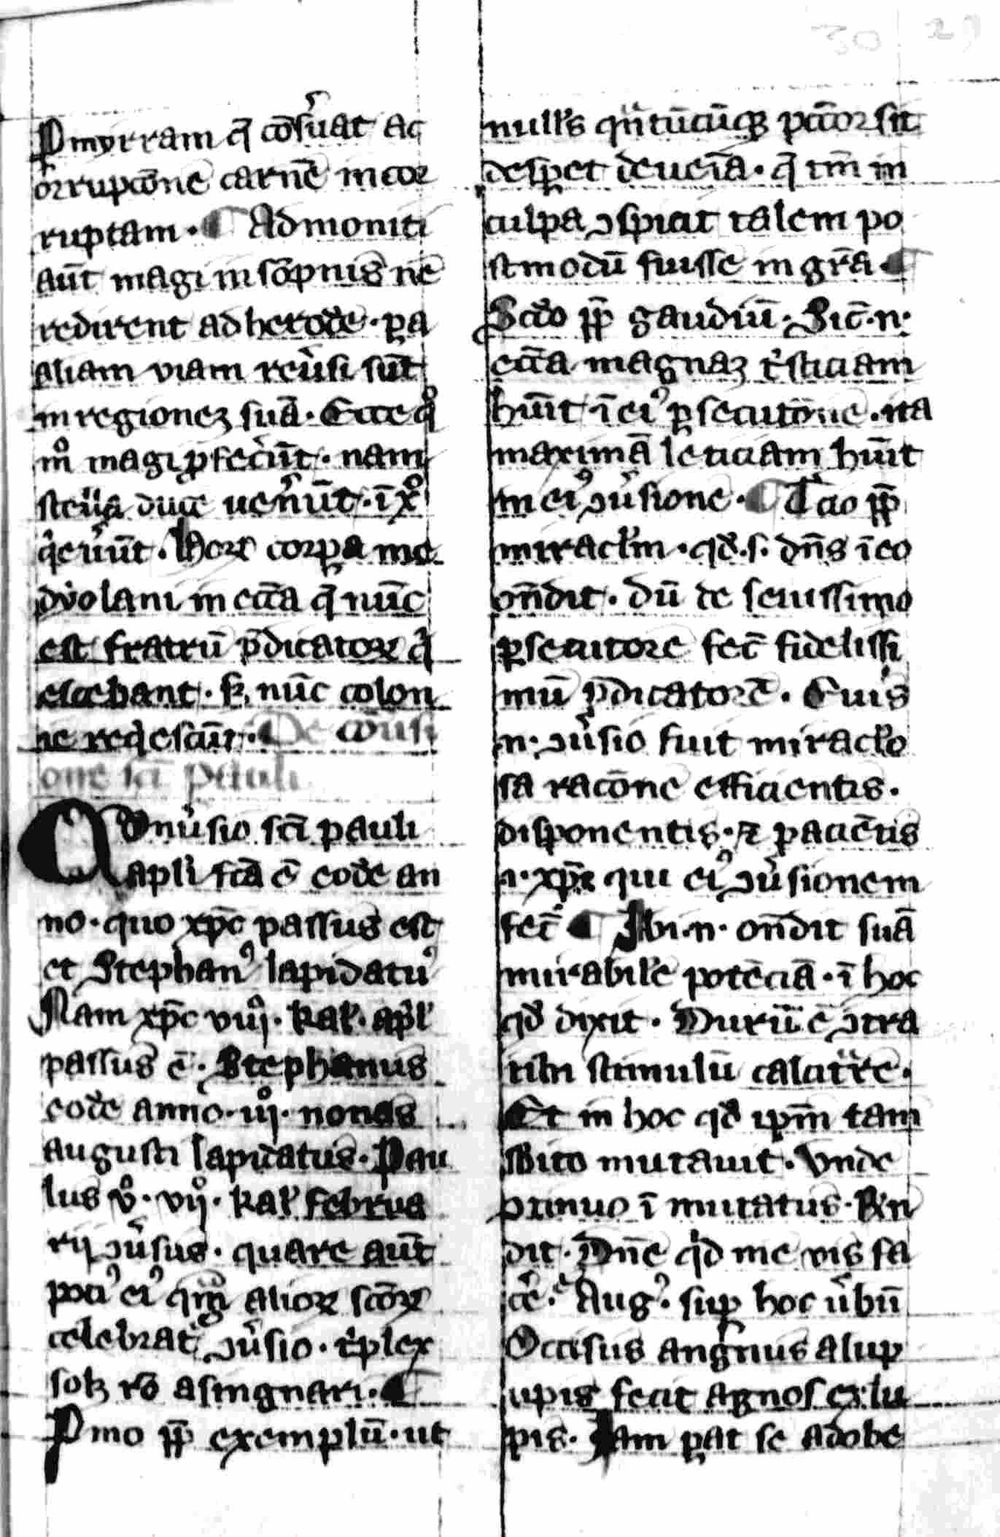 30 29
P myrram q̄ cōẜuat ac
orrupcōne carnē incor
ruptam · ¶ Admoniti
aūt magi in sōpnis ne
redirent ad herodē · ꝑ a
aliam viam reūsi sūt
in regionez suā · Ecce qͦ
mͦ magi ꝓfecerūt · nam
stella duce ueñūt · ī xͦ
corꝑa me
dyolani in ecc̄a q̄ nūc
est fratrū p̄dicatoꝝ q̇
escebant · sꝫ nūc colon
ie reqͥescūt · De cōuersi
one sc̄i pauli
Conu̓sio sc̄i pauli
apl̓i fc̄a ē eodē an
no · quo xp̄c passus est
et Stephanꝰ lapidatuꝰ
Nam xp̄c viij · kal̓ · apͥl̓
passus ē · Stephanus
eodē anno · iijͦ · nonas
augusti lapidatus · Pau
lus vͦ · vijͦ · kal̓ februa
rij ɔu̓sus · quare aūt
pociꝰ eiꝰ qm̄ alioꝝ sc̄oꝝ
celebratͬ ɔu̓sio · tͥplex
solꝫ rō asingnari · ¶
Pmo ꝓp̄ exemplū · ut
nullꝰs qͣntūcūqꝫ pc̄cor sit
desꝑet de uēia · q̄ tm̄ in
culpa ɔspicit talem po
stmodū fuisse in gr̄a ¶
Scd̓o ꝓp̄ gaudiū · Sic̄ · n ·
ecc̄a magnaꝫ tͥsticiam
hūit ī eiꝰ ꝑsecutōne · ita
maximā leticiam hūit
in eiꝰ ɔu̓sione · ¶ Tͨio ꝓp̄
miracl̓m · qd̓ · s · dn̄s ī eo
on̄dit · dū de seuissimo
ꝑsecutore fec̄ fidelissi
mū p̄dicatorē · Cuiꝰs
n · ɔu̓sio fuit miracl̓o
sa racōne efficientis ·
disponentis · ⁊ paciētis
· xp̄c qui eiꝰ ɔu̓sionem
fec̄ ¶ Ibi · n · on̄dit suā
mirabilē potēciā · ī hoc
qd̓ dixit · Durū ē ɔtra
tibi stimulū calcitͣre ·
Et in hoc qd̓ ip̄m tam
sbito mutauit · Vnde
ɔtinuo ī mutatus · Rn̄
dit · Dn̄e qͥd me vis fa
cē · Augꝰ · suꝑ hoc u̓bū
Occisus angnus a lup
upis fecit agnos ex lu
pis · Iam ꝑat se ad obe